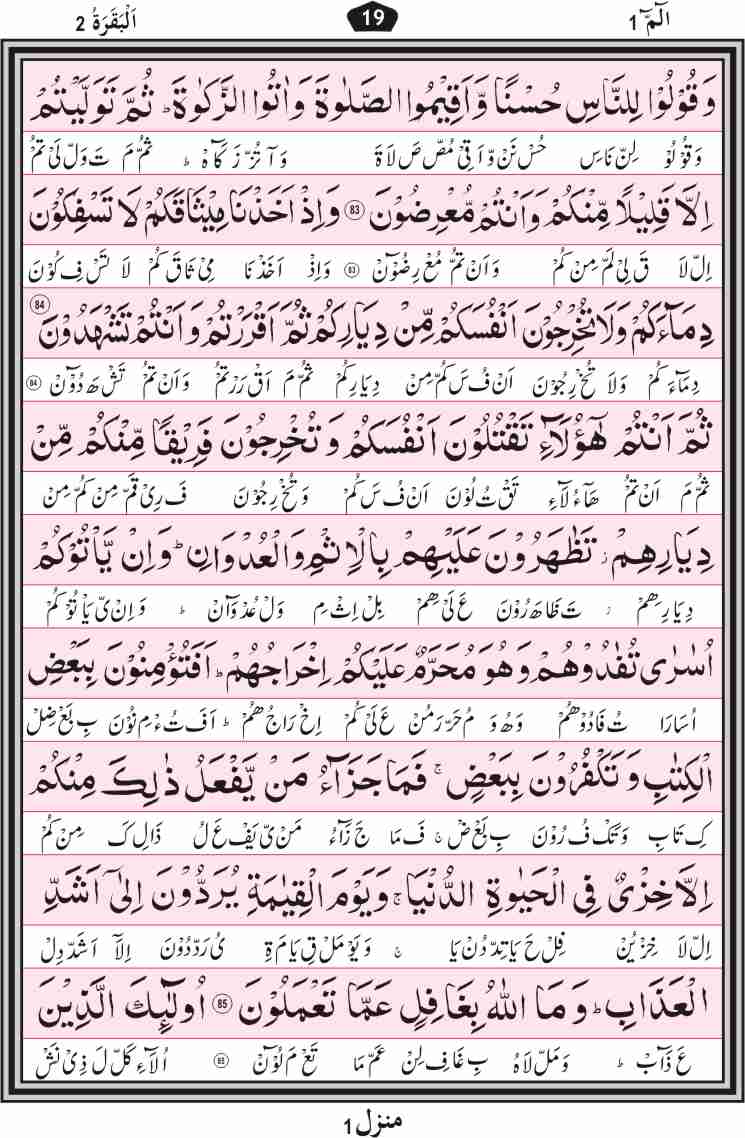 الٓمّٓ 1
19
اَلْبَقَرَةُ 2
وَ قُوْلُوْا لِلنَّاسِ حُسْنًا وَّ اَقِیْمُوا الصَّلٰوةَ وَ اٰتُوا الزَّكٰوةَ ؕ ثُمَّ تَوَلَّیْتُمْ
وَ قُوْ لُوْ لِنّ نَاسِ حُسْ نَنْ وّ اَ قِیْ مُصّ صَ لَا ةَ وَ آ تُزّ زَ كَا ةَ ؕ ثُمّ مَ تَ وَلّ لَیْ تُمْ
اِلَّا قَلِیْلًا مِّنْكُمْ وَ اَنْتُمْ مُّعْرِضُوْنَ 83 وَ اِذْ اَخَذْنَا مِیْثَاقَكُمْ لَا تَسْفِكُوْنَ
اِلّ لَا قَ لِیْ لَمّ مِنْ كُمْ وَ اَنْ تُمّ مُعْ رِضُوْنْ 83 وَ اِذْ اَخَذْ نَا مِیْ ثَاقَ كُمْ لَا تَسْ فِ كُوْنَ
دِمَآءَكُمْ وَ لَا تُخْرِجُوْنَ اَنْفُسَكُمْ مِّنْ دِیَارِكُمْ ثُمَّ اَقْرَرْتُمْ وَ اَنْتُمْ تَشْهَدُوْنَ 84
دِمَآءَ كُمْ وَ لَا تُخْ رِجُوْنَ اَنْ فُ سَ كُمّ مِنْ دِیَارِكُمْ ثُمّ مَ اَقْ رَرْ تُمْ وَ اَنْ تُمْ تَشْ هَ دُوْنْ 84
ثُمَّ اَنْتُمْ هٰۤؤُلَآءِ تَقْتُلُوْنَ اَنْفُسَكُمْ وَ تُخْرِجُوْنَ فَرِیْقًا مِّنْكُمْ مِّنْ
ثُمّ مَ اَنْ تُمْ هَاءُ لَآءِ تَقْ تُ لُوْنَ اَنْ فُ سَ كُمْ وَ تُخْ رِجُوْنَ فَ رِیْ قَمّ مِنْ كُمّ مِنْ
دِیَارِهِمْ ز تَظٰهَرُوْنَ عَلَیْهِمْ بِالْاِثْمِ وَ الْعُدْوَانِ ؕ وَ اِنْ یَّاْتُوْكُمْ
دِیَارِهِمْ ز تَ ظَاهَ رُوْنَ عَ لَیْ هِمْ بِلْ اِثْ مِ وَلْ عُدْ وَآنْ ؕ وَ اِنْ یّ یَاْ تُوْ كُمْ
اُسٰرٰی تُفٰدُوْهُمْ وَ هُوَ مُحَرَّمٌ عَلَیْكُمْ اِخْرَاجُهُمْ ؕ اَفَتُؤْمِنُوْنَ بِبَعْضِ
اُسَارَا تُ فَادُوْهُمْ وَهُ وَ مُ حَرّ رَ مُنْ عَ لَیْ كُمْ اِخْ رَاجُ هُمْ ؕ اَ فَ تُ ءْ مِ نُوْنَ بِ بَعْ ضِلْ
الْكِتٰبِ وَ تَكْفُرُوْنَ بِبَعْضٍ ۚ فَمَا جَزَآءُ مَنْ یَّفْعَلُ ذٰلِكَ مِنْكُمْ
كِ تَابِ وَ تَكْ فُ رُوْنَ بِ بَعْ ضْ ۚ فَ مَا جَ زَآءُ مَنْ یّ یَفْ عَ لُ ذَالِ كَ مِنْ كُمْ
اِلَّا خِزْیٌ فِی الْحَیٰوةِ الدُّنْیَا ۚ وَ یَوْمَ الْقِیٰمَةِ یُرَدُّوْنَ اِلٰۤی اَشَدِّ
اِلّ لَا خِزْ یُنْ فِلْ حَ یَا تِدّ دُنْ یَا ۚ وَ یَوْ مَلْ قِ یَا مَ ةِ یُ رَدّ دُوْنَ اِلَآ اَشَدّ دِلْ
الْعَذَابِ ؕ وَ مَا اللّٰهُ بِغَافِلٍ عَمَّا تَعْمَلُوْنَ 85 اُولٰٓىِٕكَ الَّذِیْنَ
عَ ذَآبْ ؕ وَ مَلّ لَاهُ بِ غَافِ لِنْ عَمّ مَا تَعْ مَ لُوْنْ 85 اُلَآءِ كَلّ لَ ذِیْ نَشْ
منزل 1